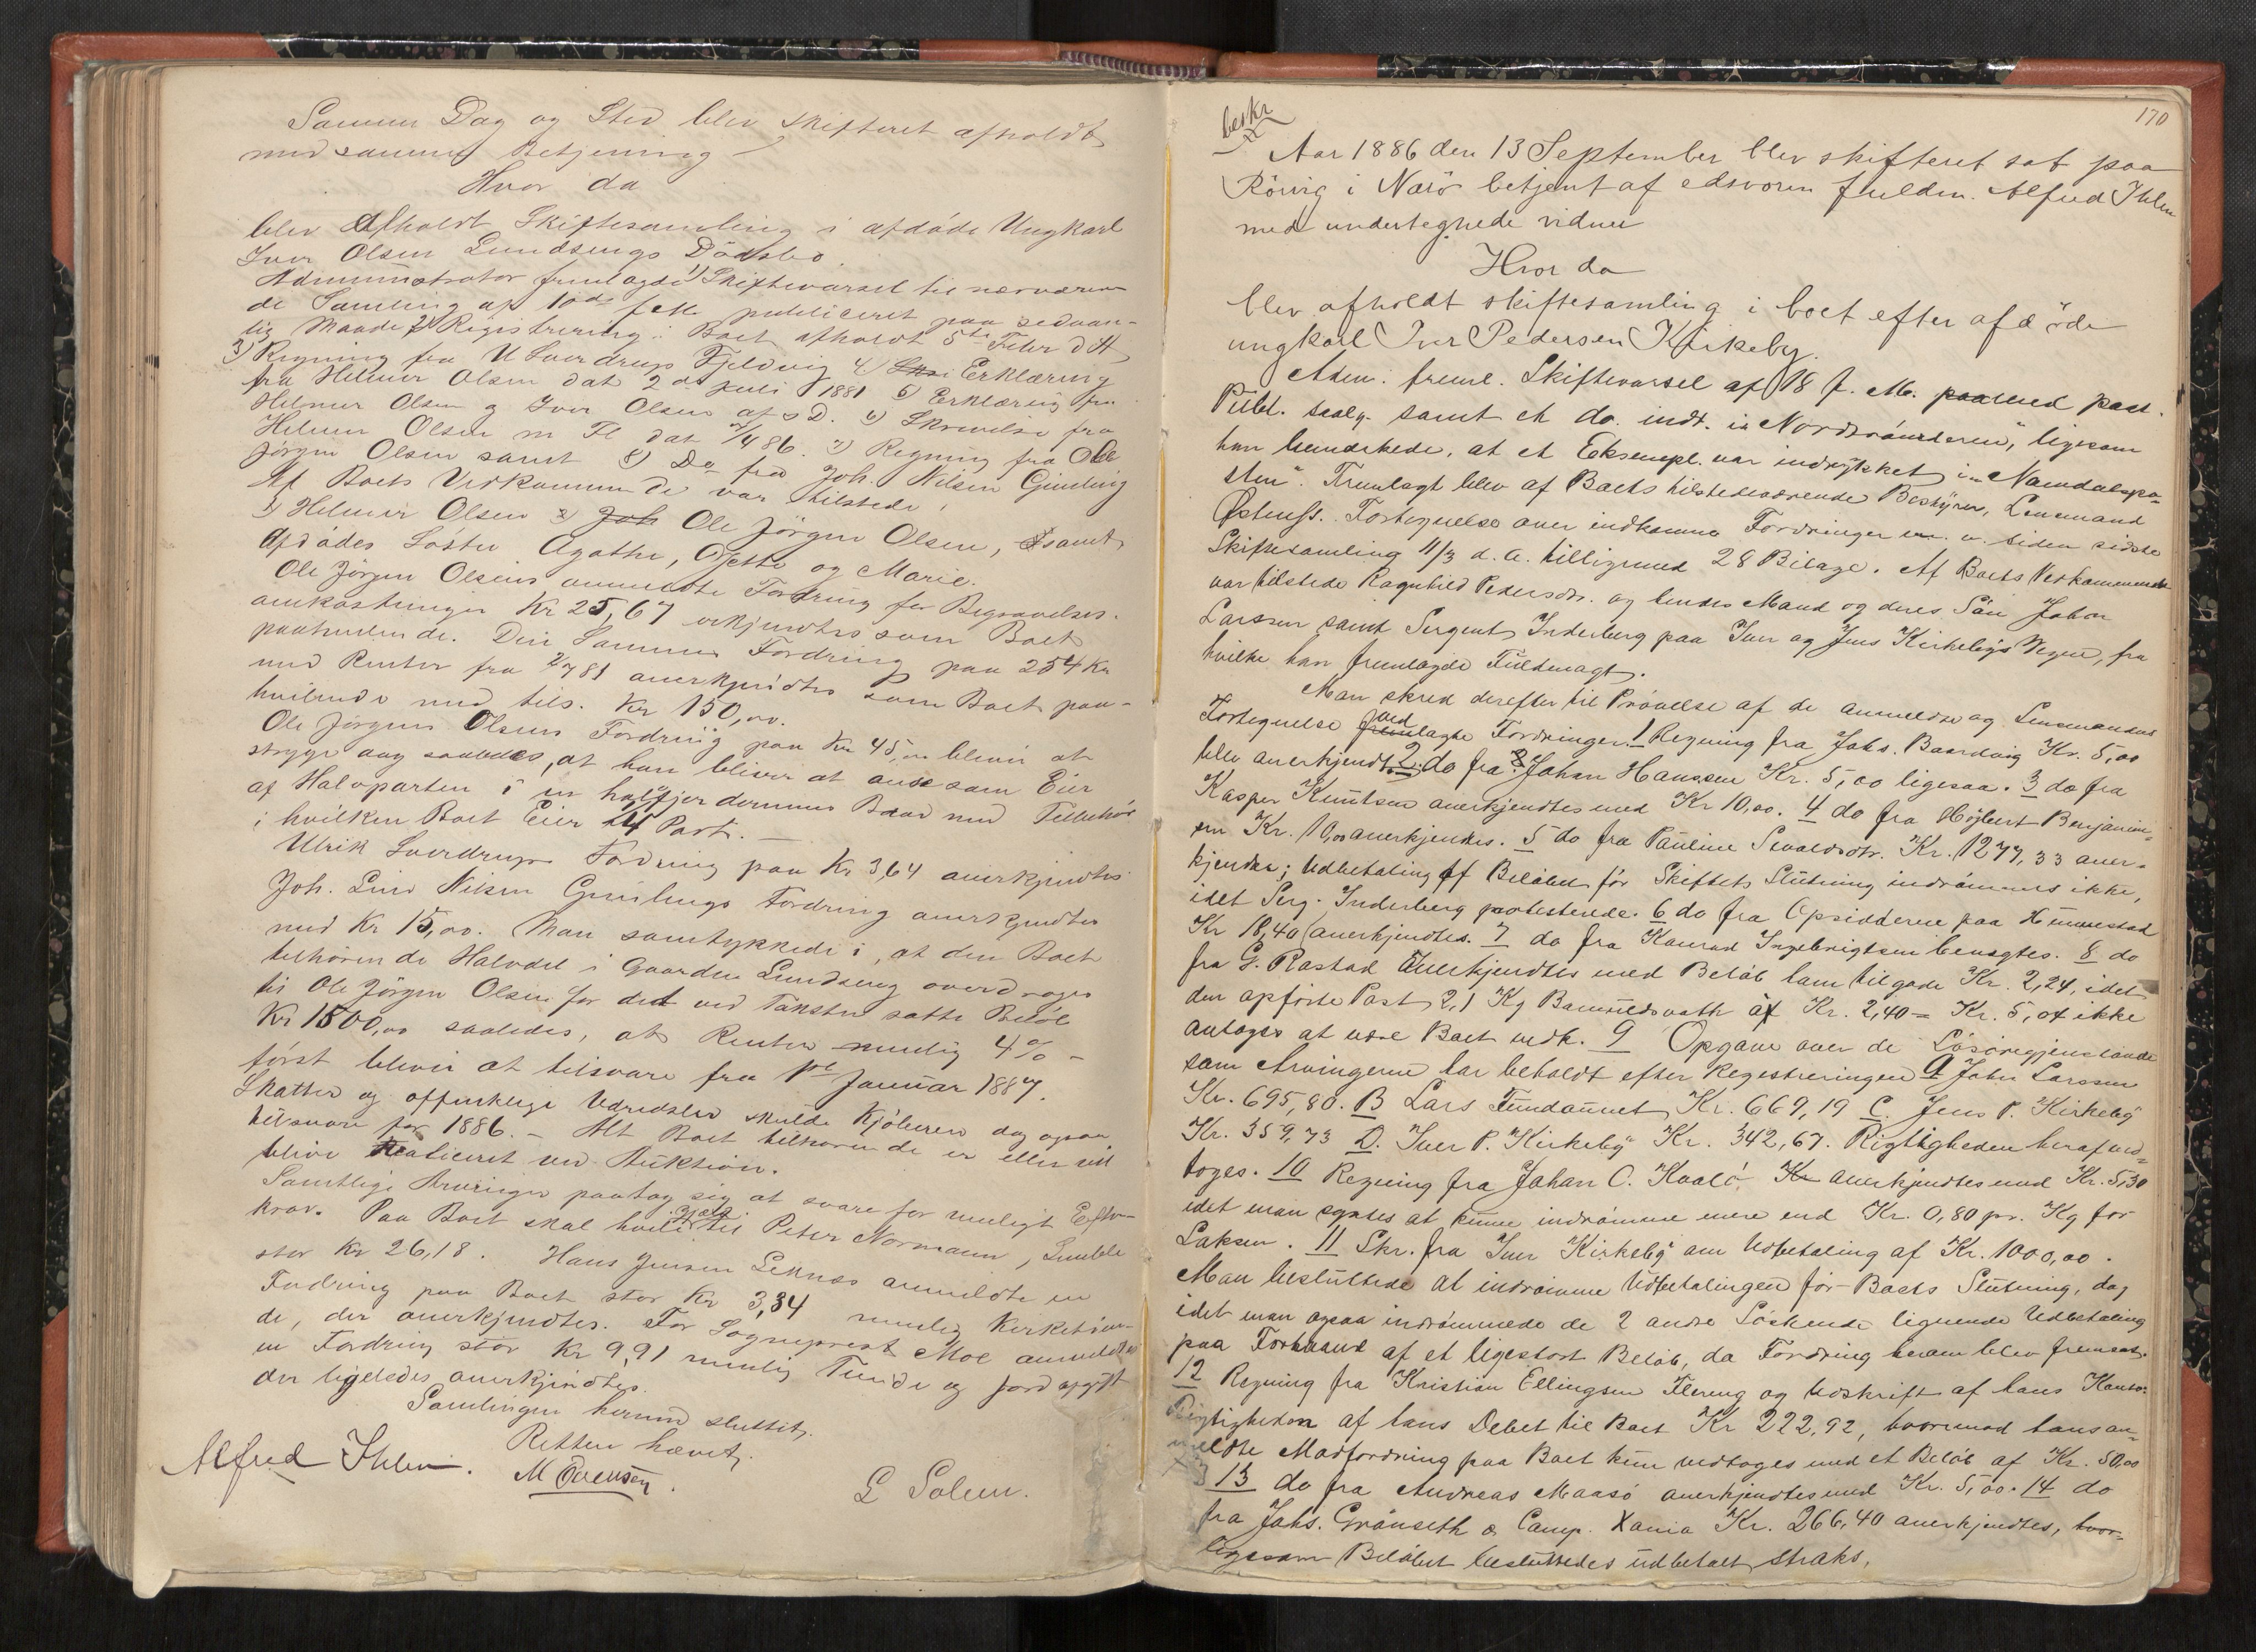 Samme Dag og Sted blev Skifteret afholdt
med samme Betjening
Hvor da
blev Afholdt Skiftesamling i afdøde Ungkarl
Iver Olsen Lundsengs Dødsbo.
Administrator fremlagde 1) Skiftevarsel til nærværen-
de Samling af 10de f. M. publiceret paa sedvan-
lig Maade 2) Registrering i Boet afholdt 5te Febr d A
3) Regning fra U Sverdrup Fjeldvig 4) Erklæring
fra Helmer Olsen dat 2den Juli 1881 5) Erklæring fra
Helmer Olsen og Iver Olsen af s D. 6) Skrivelse fra
Helmer Olsen m Fl dat 486. 7) Regning fra Ole
Jørgen Olsen samt 8) Do fra Joh. Nilsen Grinling
Af Boets Vedkommende var tilstede,
1) Helmer Olsen 2) Joh Ole Jørgen Olsen, samt
Afdødes Søstre Agathe, Ojette og Marie.
Ole Jørgen Olsens anmeldte Fordring for Begravelses-
omkostninger Kr 25,67 erkjendtes som Boet
paahvilende. Den Sammes Fordring paa 254 Kr
med Renter fra 2/7 81 anerkjendtes som Boet paa-
hvilende med tils. Kr 150,00.
Ole Jørgen Olsens Fordring paa Kr 45,00 bliver at
stryge dog saaledes, at han bliver at anse som Eier
af Halvparten i en halvfjerdemmes Baad med Tilbehør
i hvilken Boet Eier 1/4 Part. —
Ulrik Sverdrups Fordring paa Kr 3,64 anerkjendtes
Joh. Nilsen Grinlings Fordring anerkjendtes
med Kr 15,00. Man samtykkede i, at den Boet
tilhørende Halvdel i Gaarden Lundseng overdrages
til Ole Jørgen Olsen for det ved Taksten satte Beløb
Kr 1500,00 saaledes, at Renter nemlig 4% –
først bliver at tilsvare fra 1ste Januar 1887.
Skatter og offentlige Udredsler skulde Kjøberen dog ogsaa
tilsvare for 1886. – Alt Boet tilhørende er eller vil
blive realiceret ved Auktion.
Samtlige Arvinger paatog sig at svare for muligt Efter-
krav. Paa Boet skal hvile Gjæld til Peter Normann,
stor Kr 26,18. Hans Jensen Leknes anmeldte en
Fordring paa Boet stor Kr 3,34 nemlig Kirketien-
de, der anerkjendtes. For Sogneprest Moe anmeldtes
en Fordring stor Kr 9,91 nemlig Tiende og Jordafgift
der ligeledes anerkjendtes.
Samlingen hermed sluttet.
Retten hævet.
Alfred Ihlen. M Evensen. L Solem.
170
beskr
Aar 1886 den 13 September blev skifteret sat paa
Rörvig i Nærö betjent af edsvoren fuldm. Alfred Ihlen
med undertegnede vidner
Hvor da
blev afholdt skiftesamling i boet efter afdöde
ungkarl Iver Pedersen Kirkeby.
Adm. freml. Skiftevarsel af 18 f. M. paatrnd paat.
Publ. saavel samt et do. indt. i "Nordtrönderen", ligesom
han bemærkede, at et Eksempl. var indrykket i "Namdalspo-
sten". Fremlagt blev af Boets tilstedeværende Bestyrer, Lensmand
Fortegnelse over indkomne Fordringer m. v. siden sidste
Skiftesamling 11/3 d. A. tilligemed 28 Bilage. Af Boets Vedkommende
var tilstede Ragnhild Pedersdtr. og hendes Mand og deres Sön Johan
Larssen samt Sergent Inderberg paa Iver og Jens Kirkebys Vegne, fra
hvilke han fremlagde Fuldmagt.
Man skred derefter til Prövelse af de anmeldte og Lensmandens
Fortegnelse ved lagte Fordringer. 1 Regning fra Johs. Baardvig Kr. 5,00
blev anerkjendt. 2. do fra Johan Hanssen Kr. 5,00 ligesaa. 3 do fra
Kasper Knutsen anerkjendtes med Kr 10,00. 4 do fra Höjbert Benjamin-
sen Kr. 10,00 anerkjendes. 5 do fra Pauline Sevaldsdtr. Kr. 1277,33 aner-
kjendes; Udbetaling af Belöbet för Skiftets Slutning indrömmes ikke,
idet Serg. Inderberg protesterede. 6 do fra Opsidderne paa Hemnestad
Kr 18,40 anerkjendtes. 7 do fra Konrad Ingebrigtsen benegtes. 8 do
fra G. Rastad Anerkjendtes med Belöb ham tilgode Kr. 2,24, idet
den opförte Post 2,1 Kg Bomuldsvath af Kr. 2,40 = Kr. 5,04 ikke
antages at være Boet vedk. 9 Opgave over de Lösöregjenstande
som Arvingerne har beholdt efter Registreringen A John Larssen
Kr. 695,80. B Lars Fundaunet Kr. 669,19 C. Jens P. Kirkeby
Kr. 359,73 D. Iver P. Kirkeby Kr. 342,67. Rigtigheden heraf ved-
toges. 10 Regning fra Johan C. Kvalö Kr anerkjendtes med Kr. 5,30
idet man syntes at kunne indrömme mere end Kr. 0,80 pr. Kg for
Laksen. 11 Skr. fra Iver Kirkeby om Udbetaling af Kr. 1000,00.
Man besluttede at indrömme Udbetalingen för Boets Slutning, dog
idet man ogsaa indrömmede de 2 andre Söskende lignende Udbetaling
paa Forhaand af et ligestort Belöb, da Fordring herom blev fremsat.
12 Regning fra Kristian Ellingsen Flereng og Udskrift af hans Konto.
Rigtigheden af hans Debet til Boet Kr 222,92, hvorimod hans an-
meldte Modfordring paa Boet kun vedtoges med et Belöb af Kr. 50,00
13 do fra Andreas Maasö anerkjendtes med Kr. 5,00. 14 do
fra Johs. Grönseth & Comp. Xania Kr. 266,40 anerkjendtes, hvor-
ligesom Belöbet besluttedes udbetalt straks.